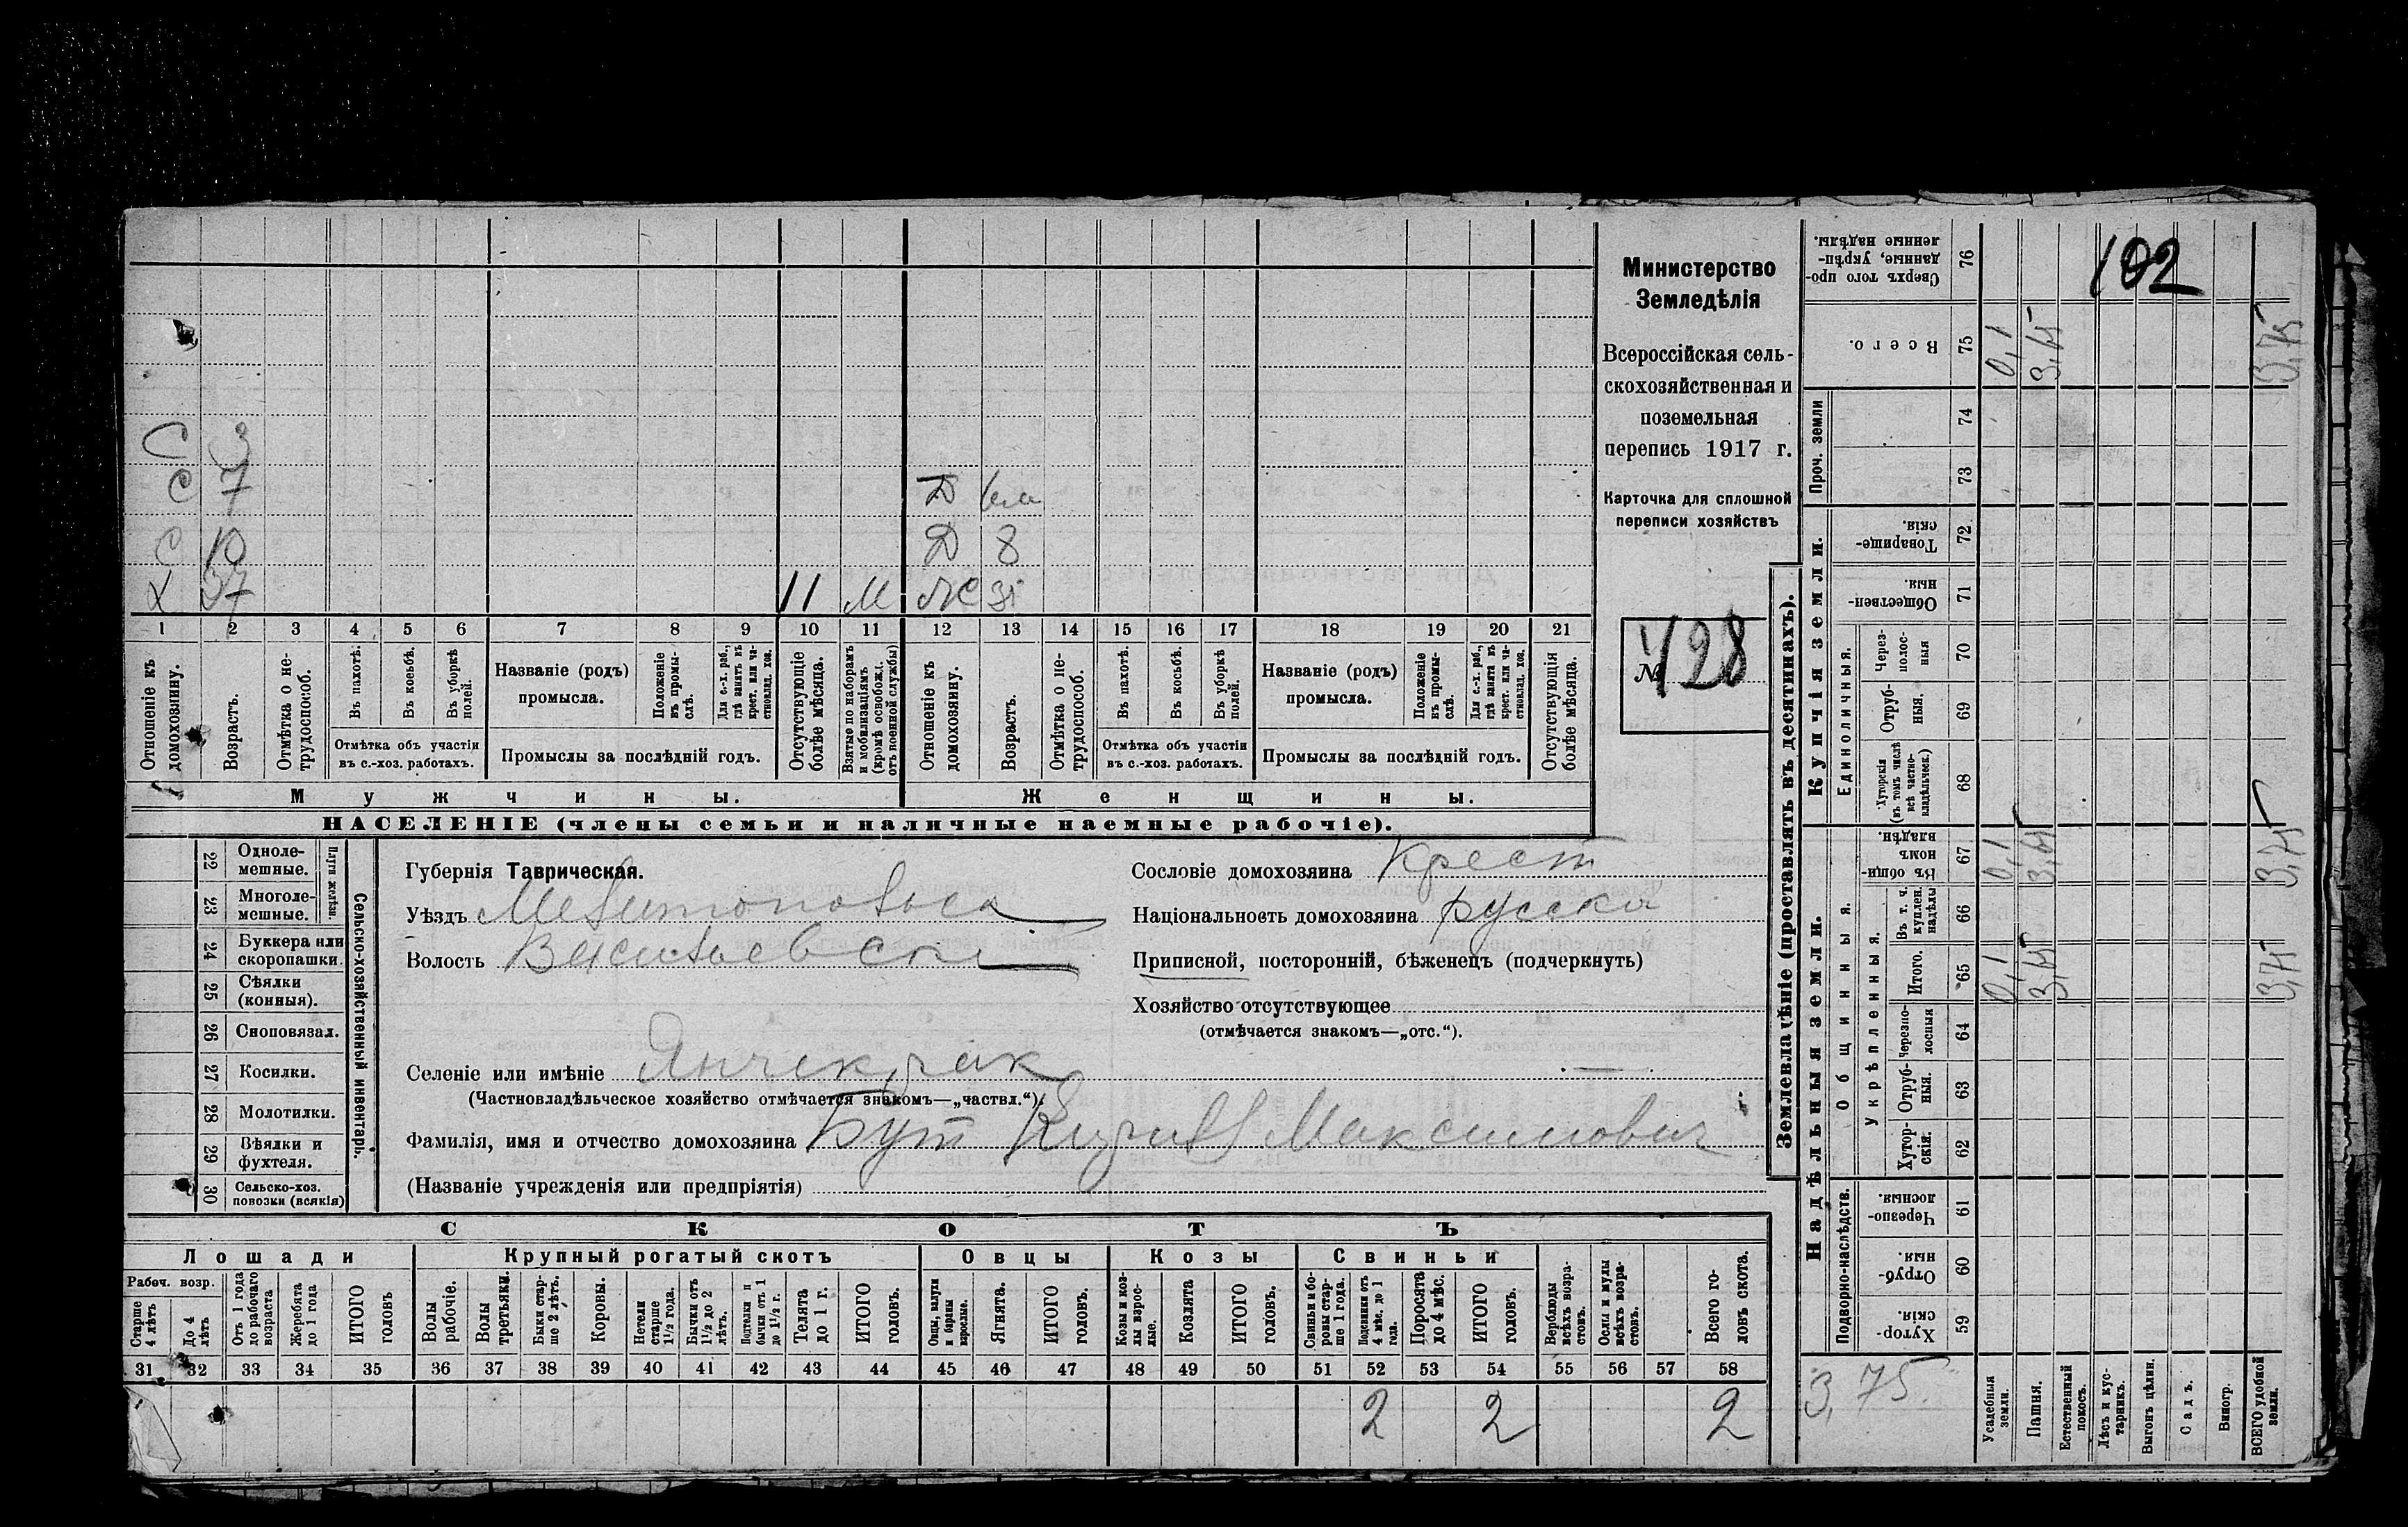 С 3
С 7 Д 6 м
С 10 Д 8
Х 37 11 М Ж 31
1 2 3 4 5 6 7 8 9 10 11 12 13 14 15 16 17 18 19 20 21
Отношеніе къ домохозяину.
Возрастъ.
Отмѣтка о не-
трудоспособ.
Въ пахотѣ.
Въ косьбѣ.
Въ уборкѣ полей.
Отмѣтка объ участіи
въ с.-хоз. работахъ.
Названіе (родъ)
промысла.
Положеніе въ промы-
слѣ.
Для с.-х. раб.,
гдѣ занятъ въ
крест. или ча-
стновлад. хоз.
Промыслы за послѣдній годъ.
Отсутствующіе
болѣе мѣсяца.
Взятые по наборамъ
и мобилизаціямъ
(кромѣ освобожд.
отъ военной службы)
Отношеніе къ
домохозяину.
Возрастъ.
Отмѣтка о не-
трудоспособ.
Въ пахотѣ.
Въ косьбѣ.
Въ уборкѣ
полей.
Отмѣтка объ участіи
въ с.-хоз. работахъ.
Названіе (родъ)
промысла.
Положеніе
въ промы-
слѣ.
Для с.-х. раб.,
гдѣ занята въ
крест. или ча-
стновлад. хоз.
Промыслы за послѣдній годъ.
Отсутствующія
болѣе мѣсяца.
Мужчины.
Женщины.
НАСЕЛЕНІЕ (члены семьи и наличные наемные рабочіе).
Министерство
Земледѣлія
Всероссійская сель-
скохозяйственная и
поземельная
перепись 1917 г.
Карточка для сплошной
переписи хозяйствъ
№ 428
22 Одноле-
мешные.
23 Многоле-
мешные.
Плуги желѣзн.
24 Буккера или
скоропашки.
25 Сѣялки
(конныя).
26 Сноповязал.
27 Косилки.
28 Молотилки.
29 Вѣялки и
фухтеля.
30 Сельско-хоз.
повозки (всякія)
Сельско-хозяйственный инвентарь.
Губернія Таврическая.
Уѣздъ Мелитопольск
Волость Васильевск
Селеніе или имѣніе Янчекрак
(Частновладѣльческое хозяйство отмѣчается знакомъ—„частвл.“)
Фамилія, имя и отчество домохозяина Бут Кирилл Максимович
(Названіе учрежденія или предпріятія)
Сословіе домохозяина Крест
Національность домохозяина русскій
Приписной, посторонній, бѣженецъ (подчеркнуть)
Хозяйство отсутствующее
(отмѣчается знакомъ—„отс.“).
СКОТЪ
Лошади
Крупный рогатый скотъ
Овцы
Козы
Свиньи
Рабоч. возр.
Старше
4 лѣтъ
До 4
лѣтъ
Отъ 1 года
до рабочаго
возраста
Жеребята
до 1 года
ИТОГО
головъ
Волы
рабочіе.
Волы
третьяки.
Быки стар-
ше 2 лѣтъ.
Коровы.
Нетели
старше
1½ года.
Бычки отъ
1½ до 2
лѣтъ.
Подтелки и
бычки отъ 1
до 1½ г.
Телята
до 1 г.
ИТОГО
головъ.
Овцы, валухи
и бараны
взрослые.
Ягнята.
ИТОГО
головъ.
Козы и коз-
лы взрос-
лые.
Козлята
ИТОГО
головъ.
Свиньи и бо-
ровы стар-
ше 1 года.
Подсвинки отъ
4 мѣс. до 1
года.
Поросята
до 4 мѣс.
ИТОГО
головъ.
Верблюды
всѣхъ возра-
стовъ.
Ослы и мулы
всѣхъ возра-
стовъ.
Всего го-
ловъ скота.
31 32 33 34 35 36 37 38 39 40 41 42 43 44 45 46 47 48 49 50 51 52 53 54 55 56 57 58
2 2 2
Землевладѣніе (проставлять въ десятинахъ).
Сверхъ того про-
данные, укрѣп-
ленные надѣлы.
76
102
Всего.
75 0,1 3,65 3,75
Проч. земли
74
73
Купчія земли.
Товарище-
скія.
72
Обществен-
ныя
71
Единоличныя.
Через-
полос-
ныя
70
Отруб-
ныя.
69
Хуторскія
(въ томъ числѣ
всѣ частно-
владѣльческ.)
68
Надѣльныя земли.
Общинныя.
Въ общин-
номъ
владѣн.
67 0,1 3,65 3,75
Укрѣпленныя.
Въ т. ч.
куплен.
надѣлы
66
Итого.
65 0,1 3,65 3,75
Черезпо-
лосныя
64
Отруб-
ныя.
63
Хутор-
скія.
62
Подворно-наслѣдств.
Черезпо-
лосныя.
61
Отруб-
ныя.
60
Хутор-
скія.
59
3,75
Усадебныя
земли.
Пашня.
Естественный
покосъ.
Лѣсъ и кус-
тарникъ.
Выгонъ цѣлин.
Садъ.
Виногр.
ВСЕГО удобной
земли.